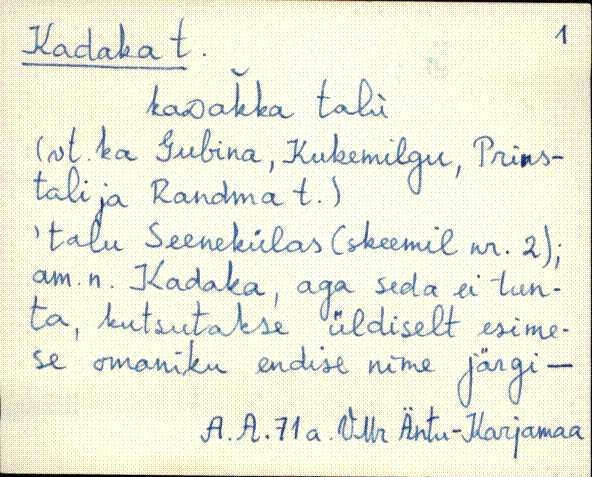 Kadaka t. 1
kaᴅak̆ka talù
(vt. ka Gubina, Kukemilgu, Prins-
tali ja Randma t.)
'talu Seenekülas (skeemil nr. 2);
am. n. Kadaka, aga seda ei tun-
ta, kutsutakse üldiselt esime-
se omaniku endise nime järgi —
A. A. 71 a. VMr Äntu-Karjamaa